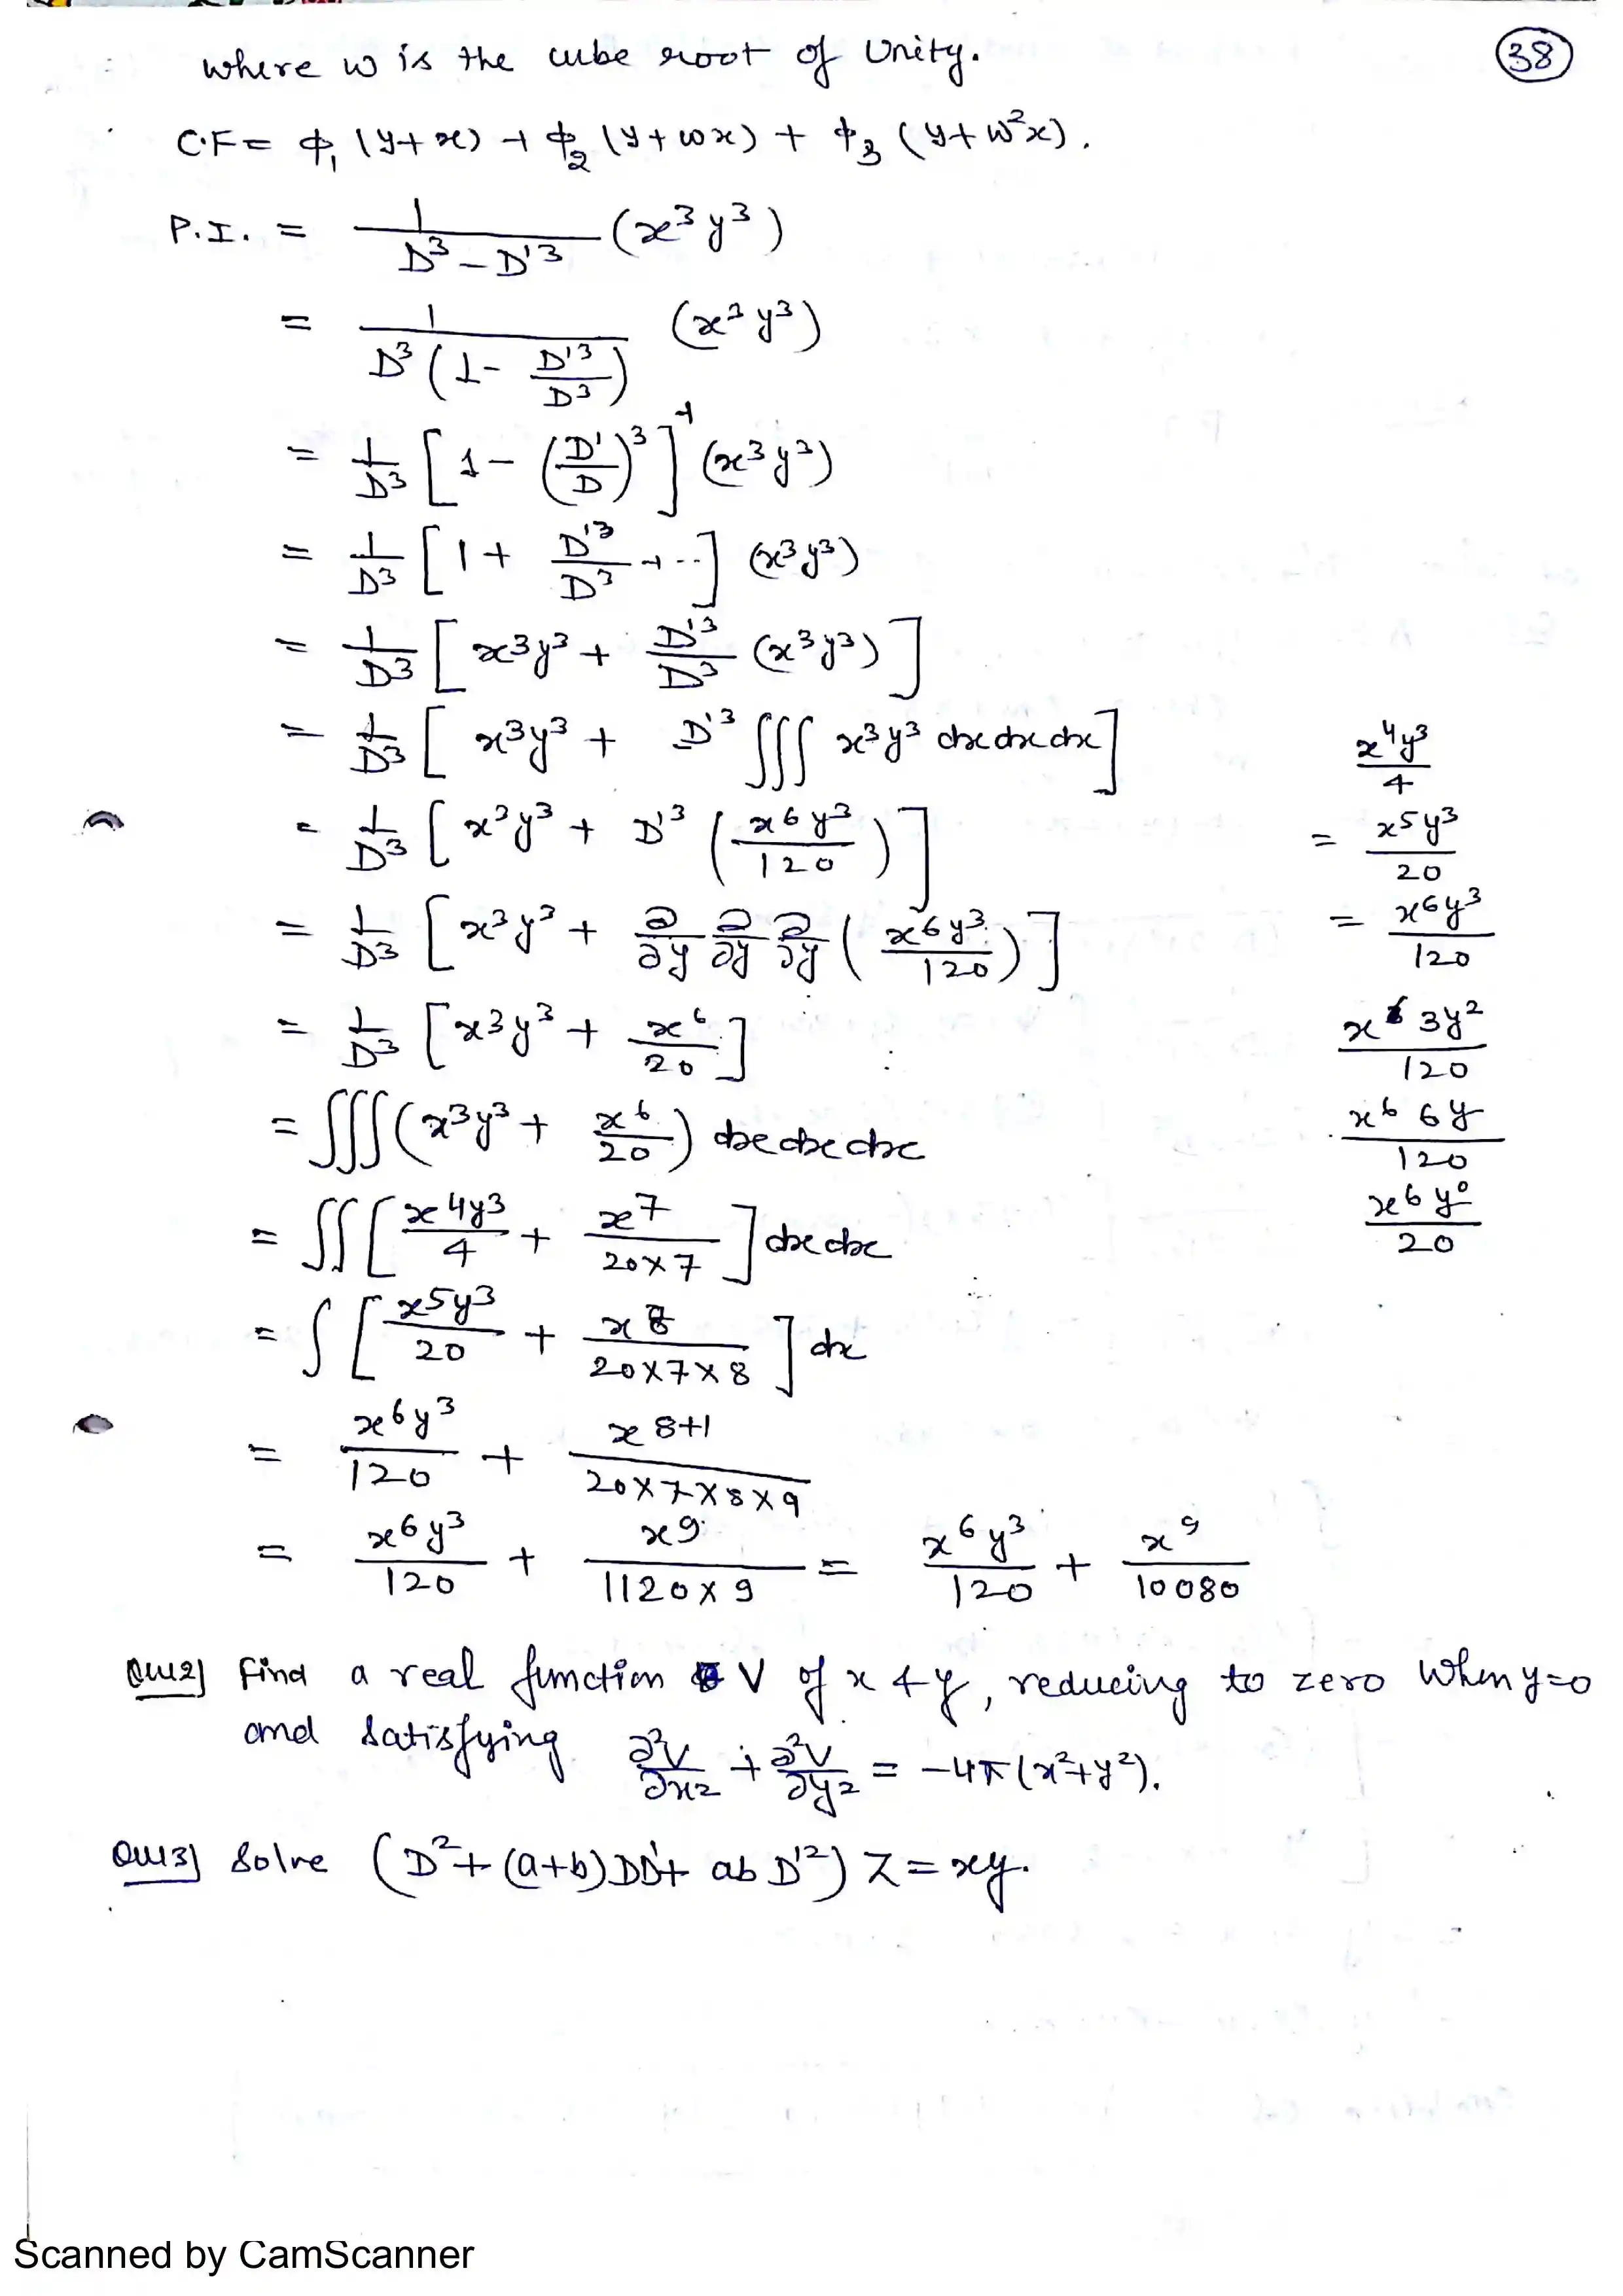 where w is the cube root of Unity.
38
C.F = ϕ₁ (y+x) + ϕ₂ (y+wx) + ϕ₃ (y+w²x).
P.I. = 1/(D³ - D'³) (x³y³)
= 1/(D³(1 - D'³/D³)) (x³y³)
= 1/D³ [1 - (D'/D)³]⁻¹ (x³y³)
= 1/D³ [1 + D'³/D³ + --] (x³y³)
= 1/D³ [x³y³ + D'³/D³ (x³y³)]
= 1/D³ [x³y³ + D'³ ∫∫∫ x³y³ dx dx dx]
x⁴y³/4
= 1/D³ [x³y³ + D'³ (x⁶y³/120)]
= x⁵y³/20
= 1/D³ [x³y³ + ∂/∂y ∂/∂y ∂/∂y (x⁶y³/120)]
= x⁶y³/120
= 1/D³ [x³y³ + x⁶/20]
x⁶ 3y²/120
= ∫∫∫ (x³y³ + x⁶/20) dx dx dx
x⁶ 6y/120
= ∫∫ [x⁴y³/4 + x⁷/(20×7)] dx dx
x⁶y⁰/20
= ∫ [x⁵y³/20 + x⁸/(20×7×8)] dx
= x⁶y³/120 + x⁸⁺¹/(20×7×8×9)
= x⁶y³/120 + x⁹/(1120×9) = x⁶y³/120 + x⁹/10080
Que2] Find a real function V of x & y, reducing to zero when y=0
and satisfying ∂²V/∂x² + ∂²V/∂y² = -4π(x²+y²).
Que3] Solve (D² + (a+b)DD' + ab D'²) Z = xy.
Scanned by CamScanner